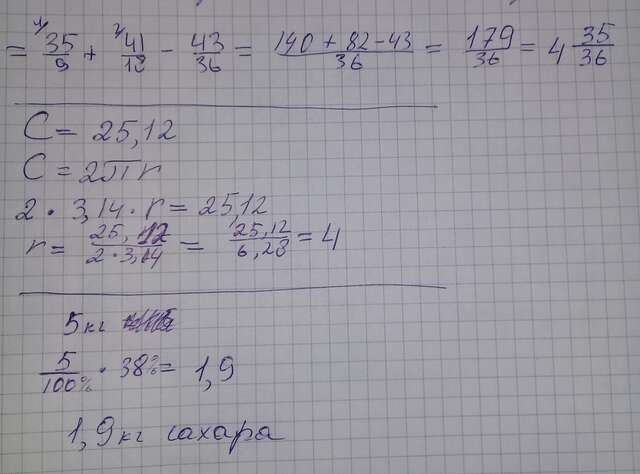 = ⁴⁾35/9 + ²⁾41/18 − 43/36 = 140 + 82 − 43/36 = 179/36 = 4 35/36
C = 25,12
C = 2πr
2 · 3,14 · r = 25,12
r = 25,12/2 · 3,14 = 25,12/6,28 = 4
5 кг
5/100% · 38% = 1,9
1,9 кг сахара